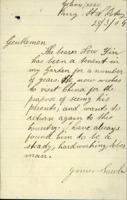 Gentlemen
The bearer Low Yin
has been a tenant in
my Garden for a number
of years. He now wishes
to visit China for the
purpose of seeing his
parents, and wants to
return again to this
country. I have always
found him to be a
steady, hardworking
man.
Yours